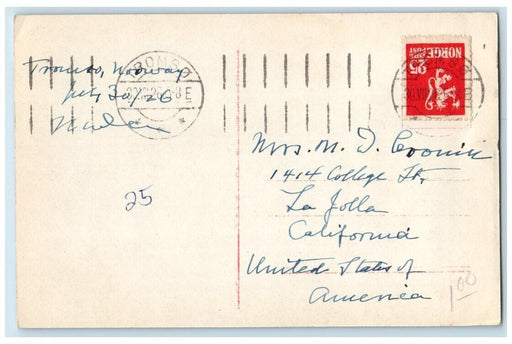 Tromso, Norway
30/26
TROMSØ
E
NORGE
POST
25
ØRE
Mrs. M. D.
1414 College St,
La Jolla
California
United States of
America
25
1.00